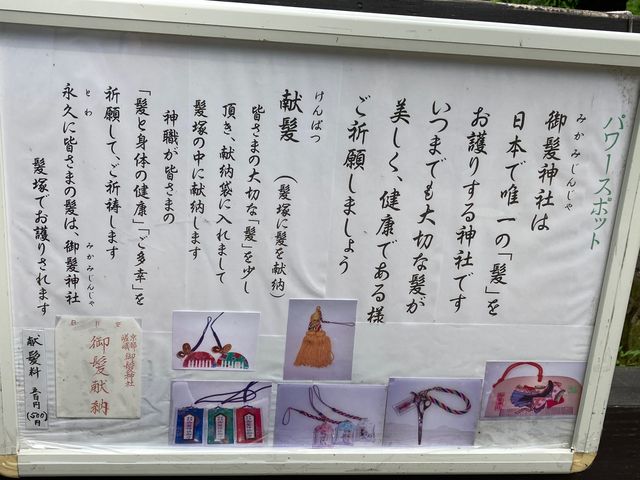 パワースポット
みかみじんじゃ
御髪神社は
日本で唯一の「髪」を
お護りする神社です
いつまでも大切な髪が
美しく、健康である様
ご祈願しましょう
けんぱつ
献髪　（髪塚に髪を献納）
皆さまの大切な「髪」を少し
頂き、献納袋に入れまして
髪塚の中に献納します
神職が皆さまの
「髪と身体の健康」「ご多幸」を
祈願して、ご祈祷します
とわ　みかみじんじゃ
永久に皆さまの髪は、御髪神社
髪塚でお護りされます
京都
嵯峨 御髪神社
御髪献納
献髪料　五百円
(500円)